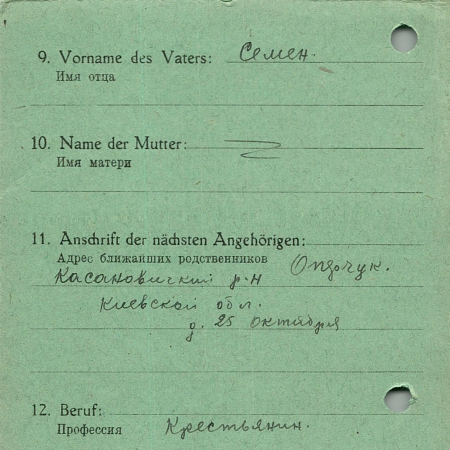 9. Vorname des Vaters: Семен.
Имя отца
10. Name der Mutter:
Имя матери
11. Anschrift der nächsten Angehörigen:
Адрес ближайших родственников
Касановичкий р-н
Киевской обл.
д. 25 Октября
12. Beruf:
Профессия Крестьянин.